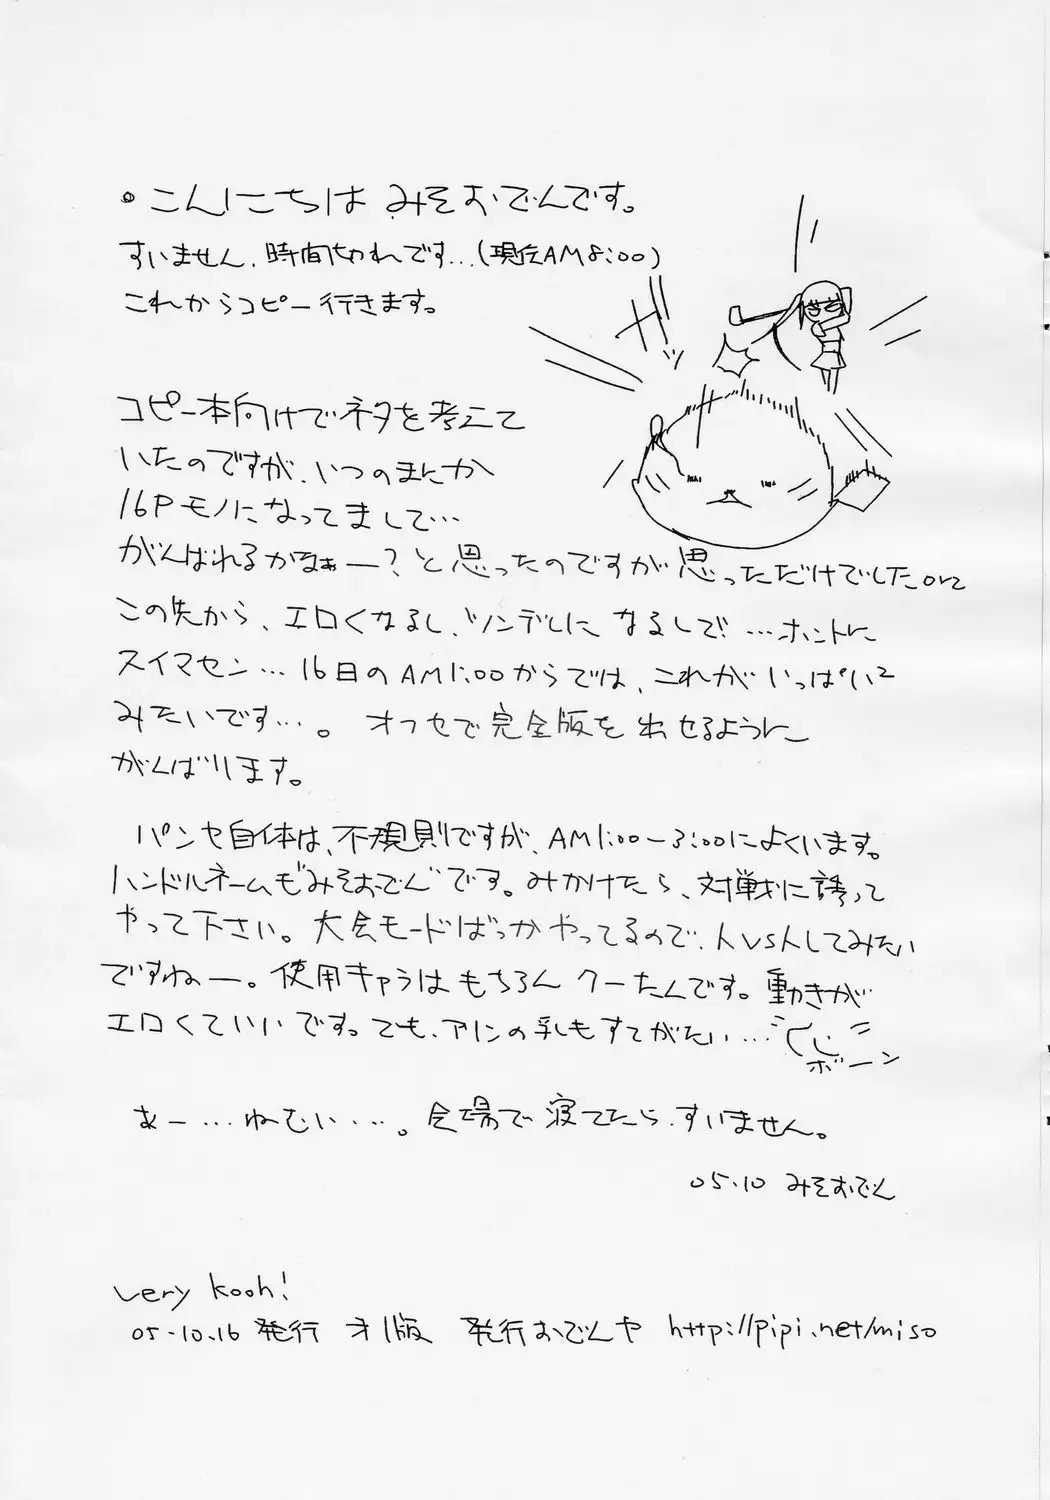 ・こんにちは みそおでんです。
すいません、時間切れです…(現在AM8:00)
これからコピー行きます。
コピー本向けでネタを考えて
いたのですが、いつのまにか
16Pモノになってまして…
がんばれるかなぁー?と思ったのですが思っただけでしたorz
この先から、エロくなるし、ツンデレになるしで!…ホントに
スイマセン…16日のAM1:00からでは、これがいっぱい²
みたいです…。オフセで完全版を出せるように
がんばります。
パンヤ自体は、不規則ですが、AM1:00-3:00によくいます。
ハンドルネームも"みそおでん"です。みかけたら、対戦に誘って
やって下さい。大会モードばっかやってるので、人vs人してみたい
ですねー。使用キャラはもちろんクーたんです。動きが
エロくていいです。でも、アリンの乳もすてがたい…
ボーン
あー…ねむい…。会場で寝てたら、すいません。
05.10 みそおでん
very kooh!
05.10.16 発行 オリ版 発行おでんや http://pipi.net/miso